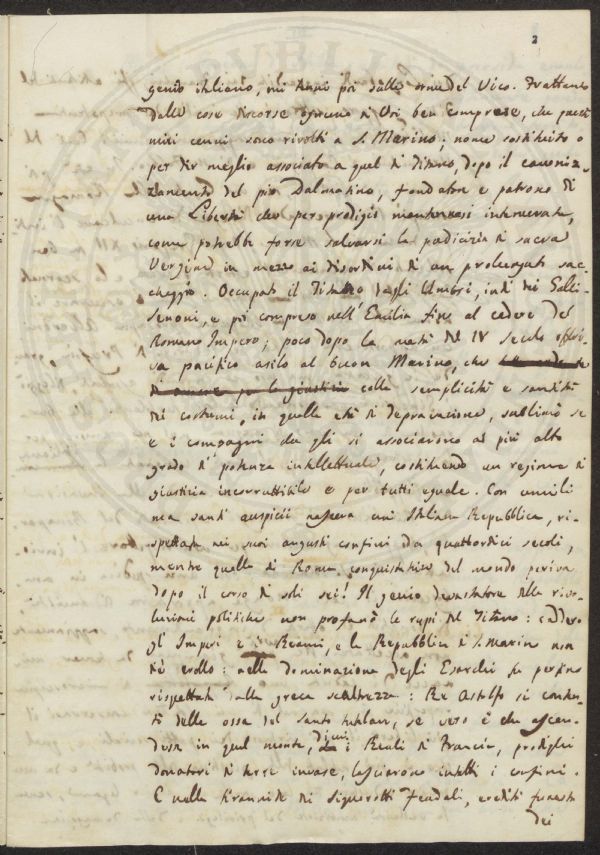 2
genio italiano, mi tenni poi dalle orme del Vico. Frattanto
dalle cose discorse ognuno di Voi ben comprese, che questi
miei cenni sono rivolti a S. Marino; nome sostituito o
per dir meglio associato a quel di Titano, dopo il canoniz-
zamento del pio Dalmatino, fondatore e patrono di
una Libertà che per prodigio mantennesi intemerata,
come potrebbe forse salvarsi la pudicizia di sacra
Vergine in mezzo ai disordini di un prolungato sac-
cheggio. Occupato il Titano dagli Umbri, indi dai Galli-
Senoni, e poi compreso nell'Emilia fino al cedere del
Romano Impero; poco dopo la metà del IV secolo offri-
va pacifico asilo al buon Marino, che
di amore per la giustizia colla semplicità e santità
dei costumi, in quella età di depravazione, sublimò se
e i compagni che gli si associarono al più alto
grado di potenza intellettuale, costituendo un regime di
giustizia incorruttibile e per tutti eguale. Con umili
ma santi auspicii nasceva una Italiana Repubblica, ri-
spettata nei suoi angusti confini da quattordici secoli,
mentre quella di Roma conquistatrice del mondo periva
dopo il corso di soli sei! Il genio devastatore delle rivo-
luzioni politiche non profanò le rupi del Titano: caddero
gl'Imperi e i Reami, e la Repubblica di S. Marino non
die crollo: nella dominazione degli Esarchi fu perfino
rispettata dalla greca scaltrezza: Re Astolfo si conten-
tò delle ossa del Santo tutelare, se vero è che ascen-
desse in quel monte, i Reali di Francia, prodighi
donatori di terre invase, lasciarono intatti i confini.
E nella tirannide dei Signorotti feudali, erediti funesti
dei